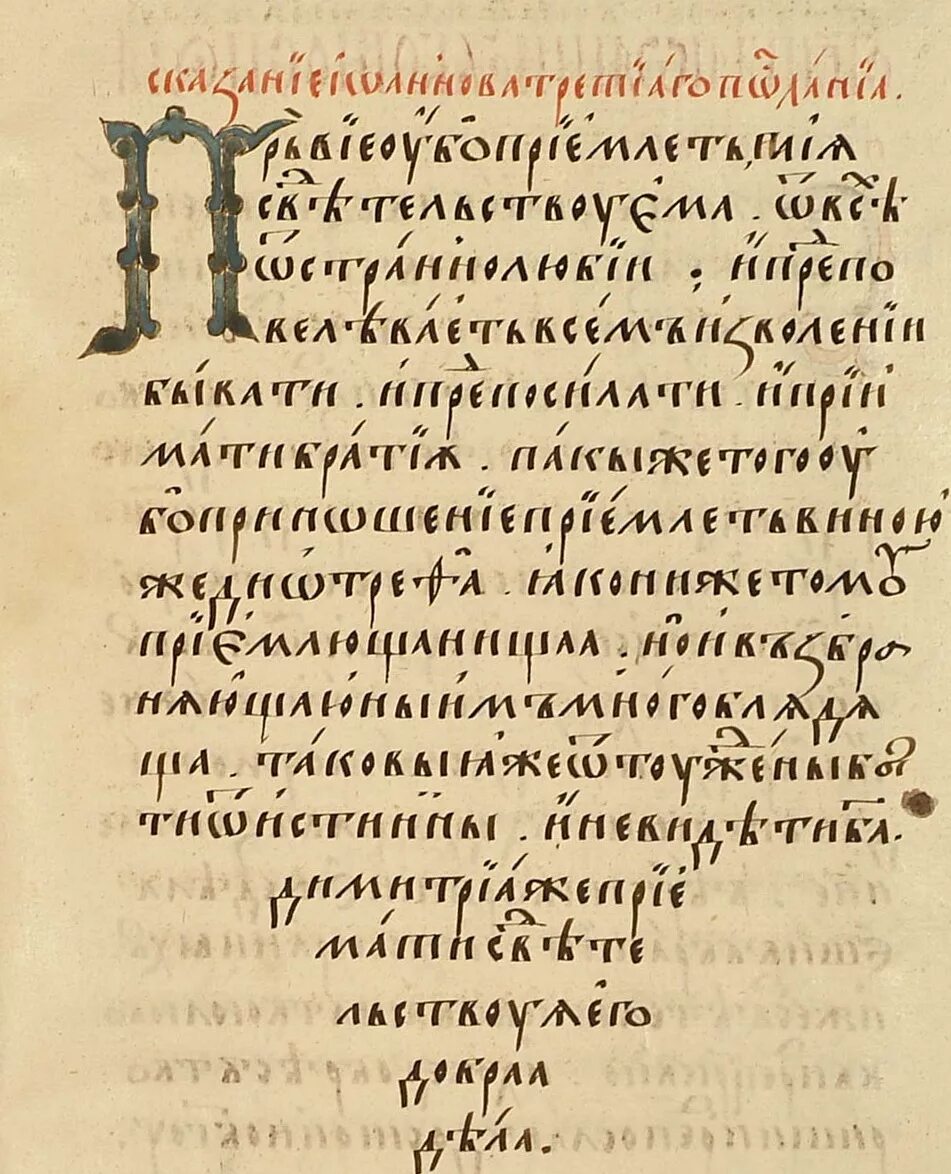 сказанїе іѡаннова третїаго пѡⷭ҇ланїа .
Прьⷡ҇вїе оу҆бо прїе́млеть , га́їѧ
свⷣѣтельствоує҆ма . ѿ всⷯѣ
ѡ҆ стра́ннолюбїи , и҆ прⷣепо
велѣва́еть всѣ́мъ и҆зволенїи
бы́вати . и҆ прⷣепосы́лати . и҆ прїи
ма́ти бра́тїѧ . па́кы же того оу҆
бо приношенїе прїе́млеть виною
же дїѡ҆трефа . ꙗко ниже томꙋ
прїє҆млюща нища́а . но и҆ възбра
нѧю́ща ю҆ны́имъ мно́го блѧдѧ
ща . та́ковыѧ же ѿтоуⷤже́ны бы
ти ѿ и҆стинны . и҆ не видѣти б҃а .
димитрїа́ же прїе
мати свⷣѣте
льствоуѧ е҆го
добраа
дѣ́ла .